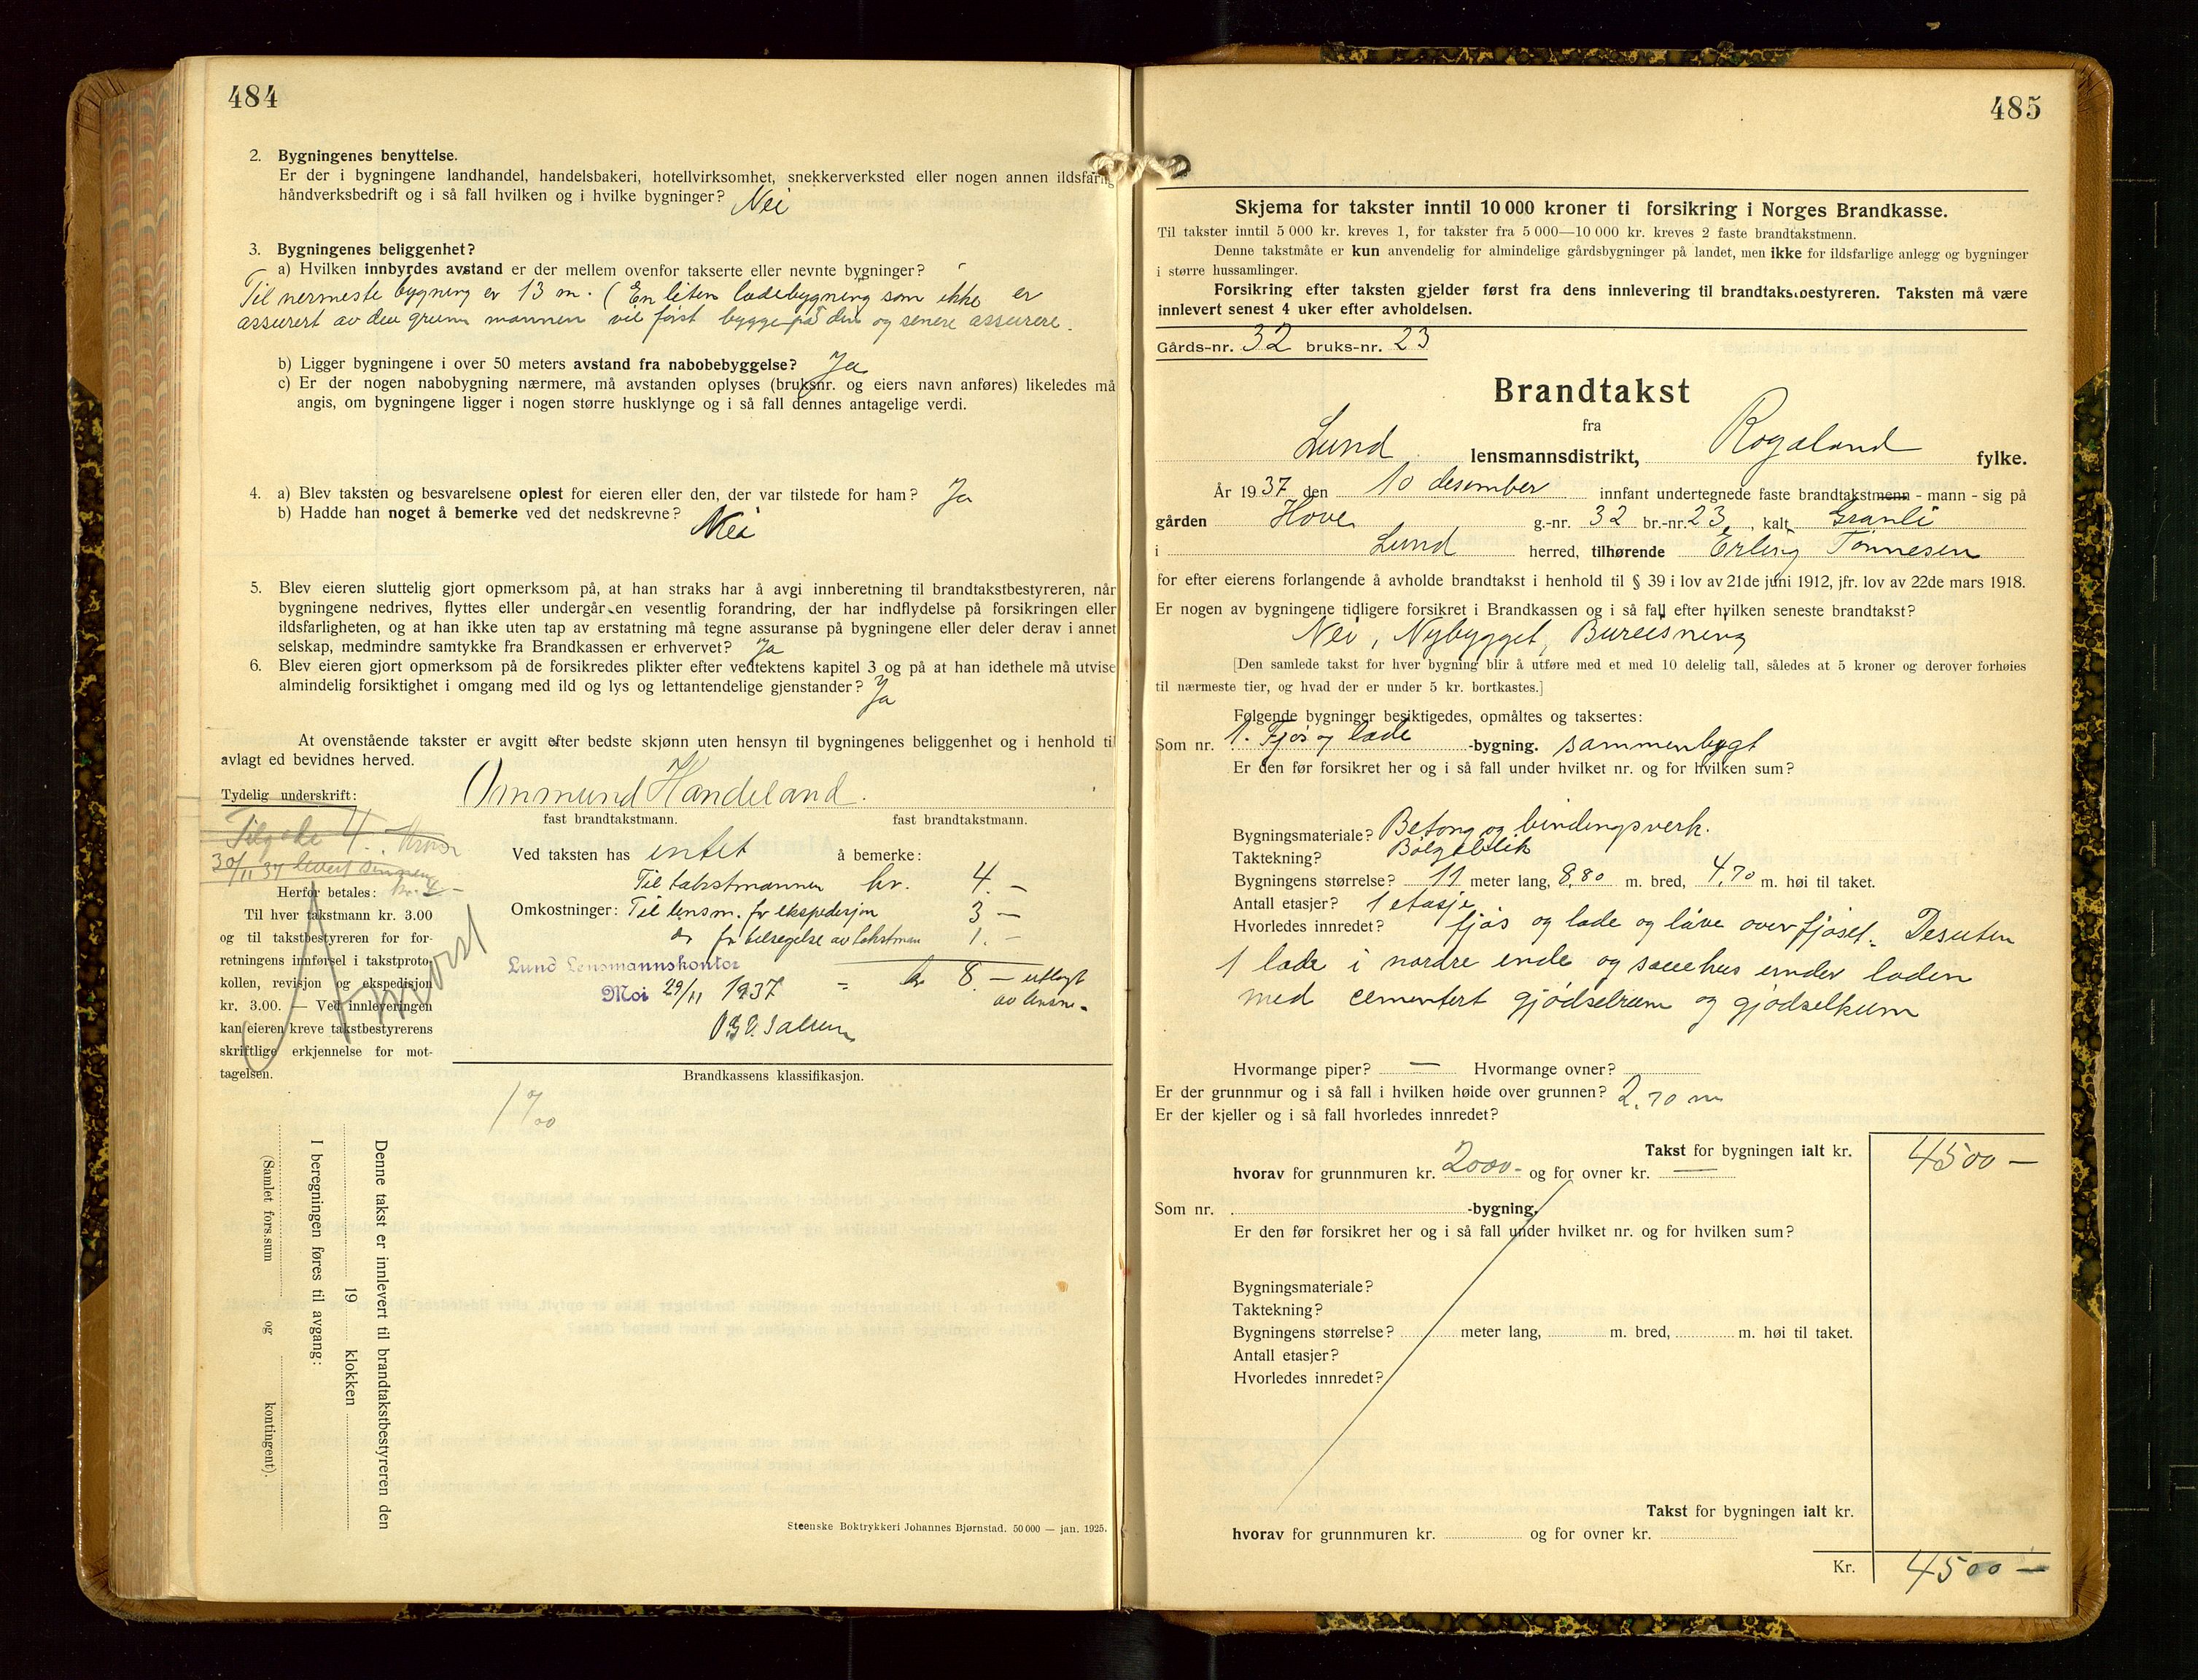 484
2. Bygningenes benyttelse.
Er der i bygningene landhandel, handelsbakeri, hotellvirksomhet, snekkerverksted eller nogen annen ildsfarlig
håndverksbedrift og i så fall hvilken og i hvilke bygninger? Nei
3. Bygningenes beliggenhet?
a) Hvilken innbyrdes avstand er der mellem ovenfor takserte eller nevnte bygninger?
Til nermeste bygning er 13 m. (En liten ladebygning som ikke er
assurert av den grunn mannen vil først bygge på den og senere assurere.
b) Ligger bygningene i over 50 meters avstand fra nabobebyggelse? Ja
c) Er der nogen nabobygning nærmere, må avstanden oplyses (bruksnr. og eiers navn anføres) likeledes må
angis, om bygningene ligger i nogen større husklynge og i så fall dennes antagelige verdi.
4. a) Blev taksten og besvarelsene oplest for eieren eller den, der var tilstede for ham? Ja
b) Hadde han noget å bemerke ved det nedskrevne? Nei
5. Blev eieren sluttelig gjort opmerksom på, at han straks har å avgi innberetning til brandtakstbestyreren, når
bygningene nedrives, flyttes eller undergår en vesentlig forandring, der har indflydelse på forsikringen eller
ildsfarligheten, og at han ikke uten tap av erstatning må tegne assuranse på bygningene eller deler derav i annet
selskap, medmindre samtykke fra Brandkassen er erhvervet? Ja
6. Blev eieren gjort opmerksom på de forsikredes plikter efter vedtektens kapitel 3 og på at han idethele må utvise
almindelig forsiktighet i omgang med ild og lys og lettantendelige gjenstander? Ja
At ovenstående takster er avgitt efter bedste skjønn uten hensyn til bygningenes beliggenhet og i henhold til
avlagt ed bevidnes herved.
Tydelig underskrift: Ommund Handeland.
fast brandtakstmann. fast brandtakstmann.
Tilgode 4.
30/11 37 levert
Ved taksten has intet å bemerke:
Til takstmannen kr. 4.-
Omkostninger: Til lensm. for ekspedisjon 3 -
do for tilsigelse av takstman 1. -
Lund Lensmannskontor
= kr 8 - utlagt
Moi 29/11 1937
av lensm.
Herfor betales: kr. 4 -
Til hver takstmann kr. 3.00
og til takstbestyreren for for-
retningens innførsel i takstproto-
kollen, revisjon og ekspedisjon
kr. 3.00. — Ved innleveringen
kan eieren kreve takstbestyrerens
skriftlige erkjennelse for mot-
tagelsen.
Brandkassens klassifikasjon.
1 0/00
Denne takst er innlevert til brandtakstbestyreren den
19 klokken
I beregningen føres til avgang:
(Samlet fors.sum og kontingent).
Steenske Boktrykkeri Johannes Bjørnstad. 50 000 — jan. 1925.
485
Skjema for takster inntil 10 000 kroner ti forsikring i Norges Brandkasse.
Til takster inntil 5 000 kr. kreves 1, for takster fra 5 000—10 000 kr. kreves 2 faste brandtakstmenn.
Denne takstmåte er kun anvendelig for almindelige gårdsbygninger på landet, men ikke for ildsfarlige anlegg og bygninger
i større hussamlinger.
Forsikring efter taksten gjelder først fra dens innlevering til brandtakstbestyreren. Taksten må være
innlevert senest 4 uker efter avholdelsen.
Gårds-nr. 32 bruks-nr. 23
Brandtakst
fra
Lund lensmannsdistrikt, Rogaland fylke.
År 1937 den 10 desember innfant undertegnede faste brandtakstmenn - mann - sig på
gården Hove g.-nr. 32 br.-nr. 23, kalt Granli
i Lund herred, tilhørende Erling Tønnesen
for efter eierens forlangende å avholde brandtakst i henhold til § 39 i lov av 21de juni 1912, jfr. lov av 22de mars 1918.
Er nogen av bygningene tidligere forsikret i Brandkassen og i så fall efter hvilken seneste brandtakst?
Nei, Nybygget, Bureisning
[Den samlede takst for hver bygning blir å utføre med et med 10 delelig tall, således at 5 kroner og derover forhøies
til nærmeste tier, og hvad der er under 5 kr. bortkastes.]
Følgende bygninger besiktigedes, opmåltes og taksertes:
Som nr. 1. Fjøs og lade -bygning. sammenbygt
Er den før forsikret her og i så fall under hvilket nr. og for hvilken sum?
Bygningsmateriale? Betong og bindingsverk.
Taktekning? Bølgeblik
Bygningens størrelse? 11 meter lang, 8,80 m. bred, 4,70 m. høi til taket.
Antall etasjer? 1 etasje
Hvorledes innredet? fjøs og lade og låve over fjøset. Desuten
1 lade i nordre ende og sauehus under laden
med cementert gjødselrum og gjødselkum
Hvormange piper? — Hvormange ovner?
Er der grunnmur og i så fall i hvilken høide over grunnen? 2,70 m
Er der kjeller og i så fall hvorledes innredet?
Takst for bygningen ialt kr. 4500 —
hvorav for grunnmuren kr. 2000- og for ovner kr. —
Som nr. -bygning.
Er den før forsikret her og i så fall under hvilket nr. og for hvilken sum?
Bygningsmateriale?
Taktekning?
Bygningens størrelse? meter lang, m. bred, m. høi til taket.
Antall etasjer?
Hvorledes innredet?
Takst for bygningen ialt kr.
hvorav for grunnmuren kr. og for ovner kr.
Kr. 4500 —